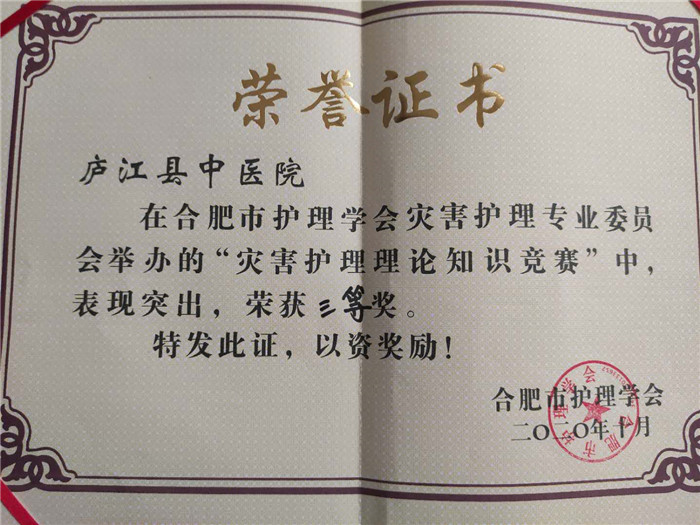 荣誉证书
庐江县中医院
在合肥市护理学会灾害护理专业委员
会举办的“灾害护理理论知识竞赛”中，
表现突出，荣获三等奖。
特发此证，以资奖励！
合肥市护理学会
二〇二〇年十月
合肥市护理学会